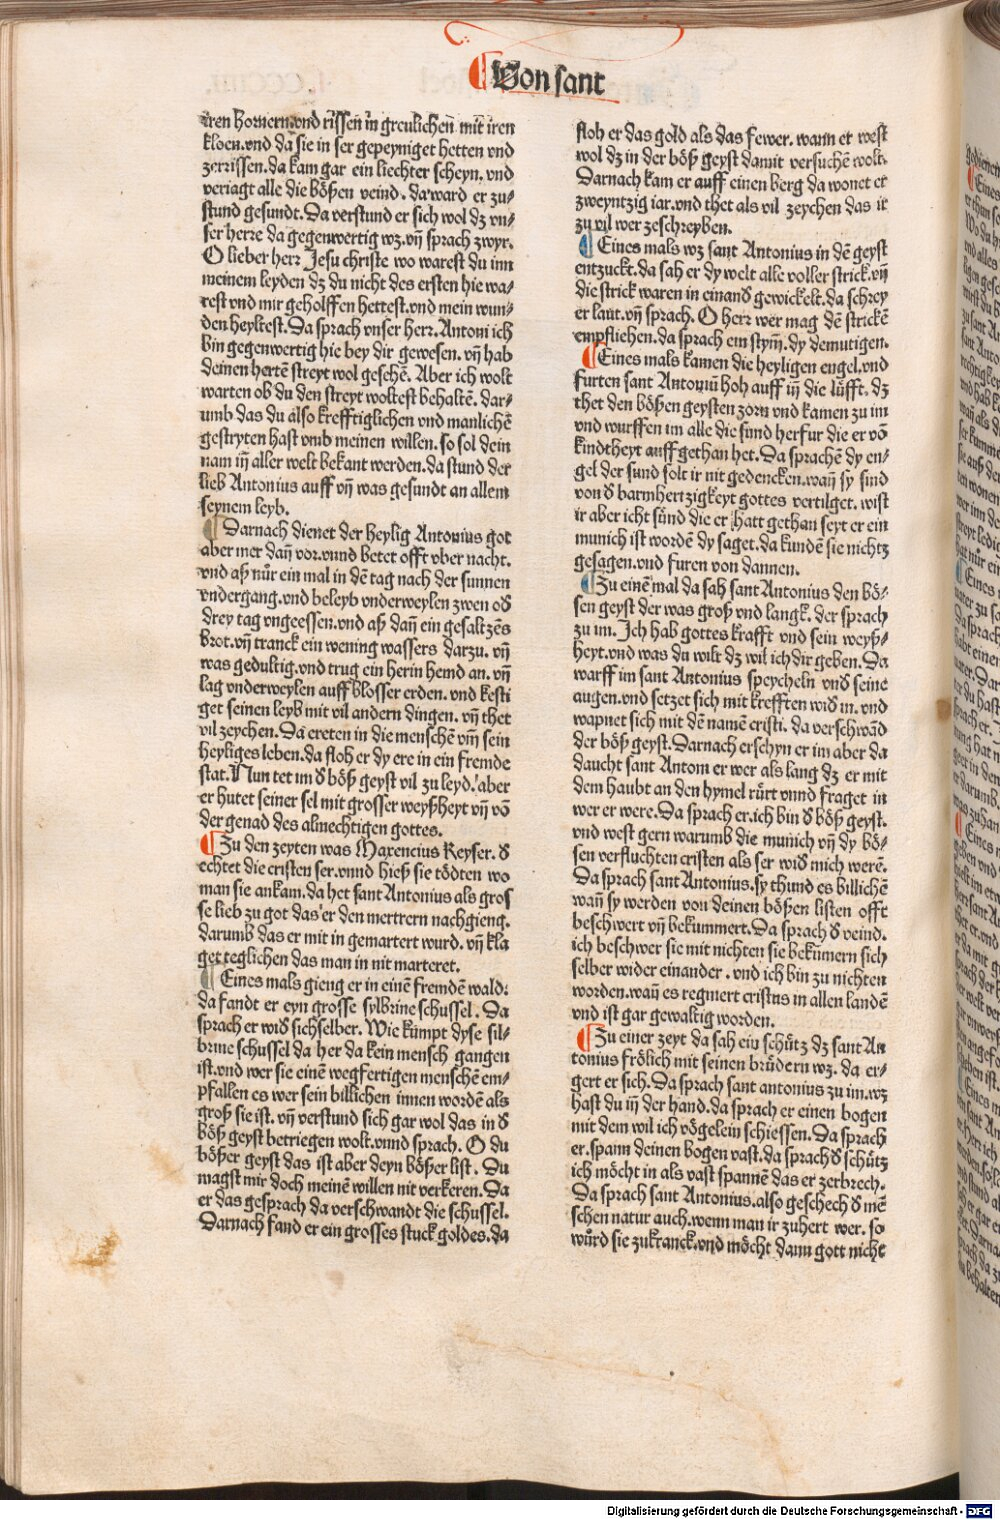 ¶ Von sant
iren hornern.vnd rissen in greulichen mit iren
kloen.vnd da sie in ser gepeyniget hetten vnd
zerrissen.da kam gar ein liechter scheyn.vnd
veriagt alle die bößen veind.da ward er zu⸗
stund gesundt.Da verstund er sich wol dz vn⸗
ser herre da gegenwertig wz.vñ sprach zwyr.
O lieber herr Jesu christe wo warest du inn
meinem leyden dz du nicht des ersten hie wa⸗
rest vnd mir geholffen hettest.vnd mein wun⸗
den heyltest.Da sprach vnser herr.Antoni ich
bin gegenwertig hie bey dir gewesen.vñ hab
deinen hertē streyt wol gesehē.Aber ich wolt
warten ob du den streyt woltest behaltē.dar⸗
umb das du also krefftiglichen vnd manlichē
gestryten hast vmb meinen willen.so sol dein
nam in̄ aller welt bekant werden.da stund der
lieb Antonius auff vñ was gesundt an allem
seynem leyb.
¶ Darnach dienet der heylig Antonius got
aber mer dañ vor.vnnd betet offt vber nacht.
vnd aß nůr ein mal in dē tag nach der sunnen
vndergang.vnd beleyb vnderweylen zwen oð
drey tag vngeessen.vnd aß dañ ein gesaltzēs
brot.vñ tranck ein wening wassers darzu.vñ
was gedultig.vnd trug ein herin hemd an.vñ
lag vnderweylen auff blosser erden.vnd kesti
get seinen leyb mit vil andern dingen.vñ thet
vil zeychen.Da ereten in die menschē vm̄ sein
heyliges leben.da floh er dy ere in ein fremde
stat.Nun tet im ð böß geyst vil zu leyd.aber
er hutet seiner sel mit grosser weyßheyt vñ vō
der genad des almechtigen gottes.
¶ Zu den zeyten was Maxencius Keyser.ð
echtet die cristen ser.vnnd hieß sie tödten wo
man sie ankam.da het sant Antonius als gros
se lieb zu got das er den mertrern nachgieng.
darumb das er mit in gemartert wurd.vñ kla
get teglichen das man in nit marteret.
¶ Eines mals gieng er in einē fremdē wald.
da fandt er eyn grosse sylbrine schussel.Da
sprach er wið sichselber.Wie kumpt dyse sil⸗
brine schussel da her da kein mensch gangen
ist.vnd wer sie einē wegfertigen menschē em⸗
pfallen es wer sein billichen innen wordē als
groß sie ist.vñ verstund sich gar wol das in ð
böß geyst betriegen wolt.vnnd sprach.O du
bößer geyst das ist aber deyn bößer list.Du
magst mir doch meinē willen nit verkeren.Da
er das gesprach da verschwandt die schussel.
Darnach fand er ein grosses stuck goldes.da
floh er das gold als das fewer.wann er west
wol dz in der böß geyst damit versuchē wolt.
Darnach kam er auff einen berg da wonet er
zweyntzig iar.vnd thet als vil zeychen das ir
zu vil wer zeschreyben.
¶ Eines mals wz sant Antonius in dē geyst
entzuckt.da sah er dy welt alle voller strick.vñ
die strick waren in einanð gewickelt.da schrey
er laut.vñ sprach.O herr wer mag dē strickē
empfliehen.da sprach ein stym̄.dy demutigen.
¶ Eines mals kamen die heyligen engel.vnd
furten sant Antoniū hoh auff in̄ die lůfft.dz
thet den bößen geysten zorn vnd kamen zu im
vnd wurffen im alle die sund herfur die er vō
kindtheyt auff gethan het.Da sprachē dy en⸗
gel der sund solt ir nit gedencken.wañ sy sind
von ð barmhertzigkeyt gottes vertilget.wist
ir aber icht sünd die er hatt gethan seyt er ein
munich ist wordē dy saget.da kundē sie nichtz
gesagen.vnd furen von dannen.
¶ Zu einē mal da sah sant Antonius den bö⸗
sen geyst der was groß vnd langk.der sprach
zu im.Ich hab gottes krafft vnd sein weyß⸗
heyt.vnd was du wilt dz wil ich dir geben.Da
warff im sant Antonius speycheln vnð seine
augen.vnd setzet sich mit krefften wið in.vnd
wapnet sich mit dē namē cristi.da verschwād
der böß geyst.Darnach erschyn er im aber da
daucht sant Antoni er wer als lang dz er mit
dem haubt an den hymel růrt vnnd fraget in
wer er were.Da sprach er.ich bin ð böß geyst.
vnd west gern warumb die munich vñ dy bö⸗
sen verfluchten cristen als ser wið mich werē.
Da sprach sant Antonius.sy thund es billichē
wañ sy werden von deinen bößen listen offt
beschwert vñ bekummert.Da sprach ð veind.
ich beschwer sie mit nichten sie bekūmern sich
selber wider einander.vnd ich bin zu nichten
worden.wañ es regniert cristus in allen landē
vnd ist gar gewaltig worden.
¶ Zu einer zeyt da sah ein schůtz dz sant An
tonius frölich mit seinen brůdern wz.da er⸗
gert er sich.Da sprach sant antonius zu im.wz
hast du in̄ der hand.da sprach er einen bogen
mit dem wil ich vögelein schiessen.Da sprach
er.spann deinen bogen vast.da sprach ð schůtz
ich möcht in als vast spannē das er zerbrech.
Da sprach sant Antonius.also geschech ð mē
schen natur auch.wenn man ir zuhert wer.so
würd sie zukranck.vnd möcht dann gott nicht
Digitalisierung gefördert durch die Deutsche Forschungsgemeinschaft - DFG